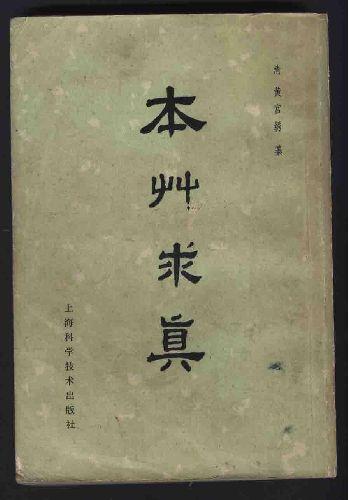 清 黄宫绣 纂
本艸求眞
上海科学技术出版社